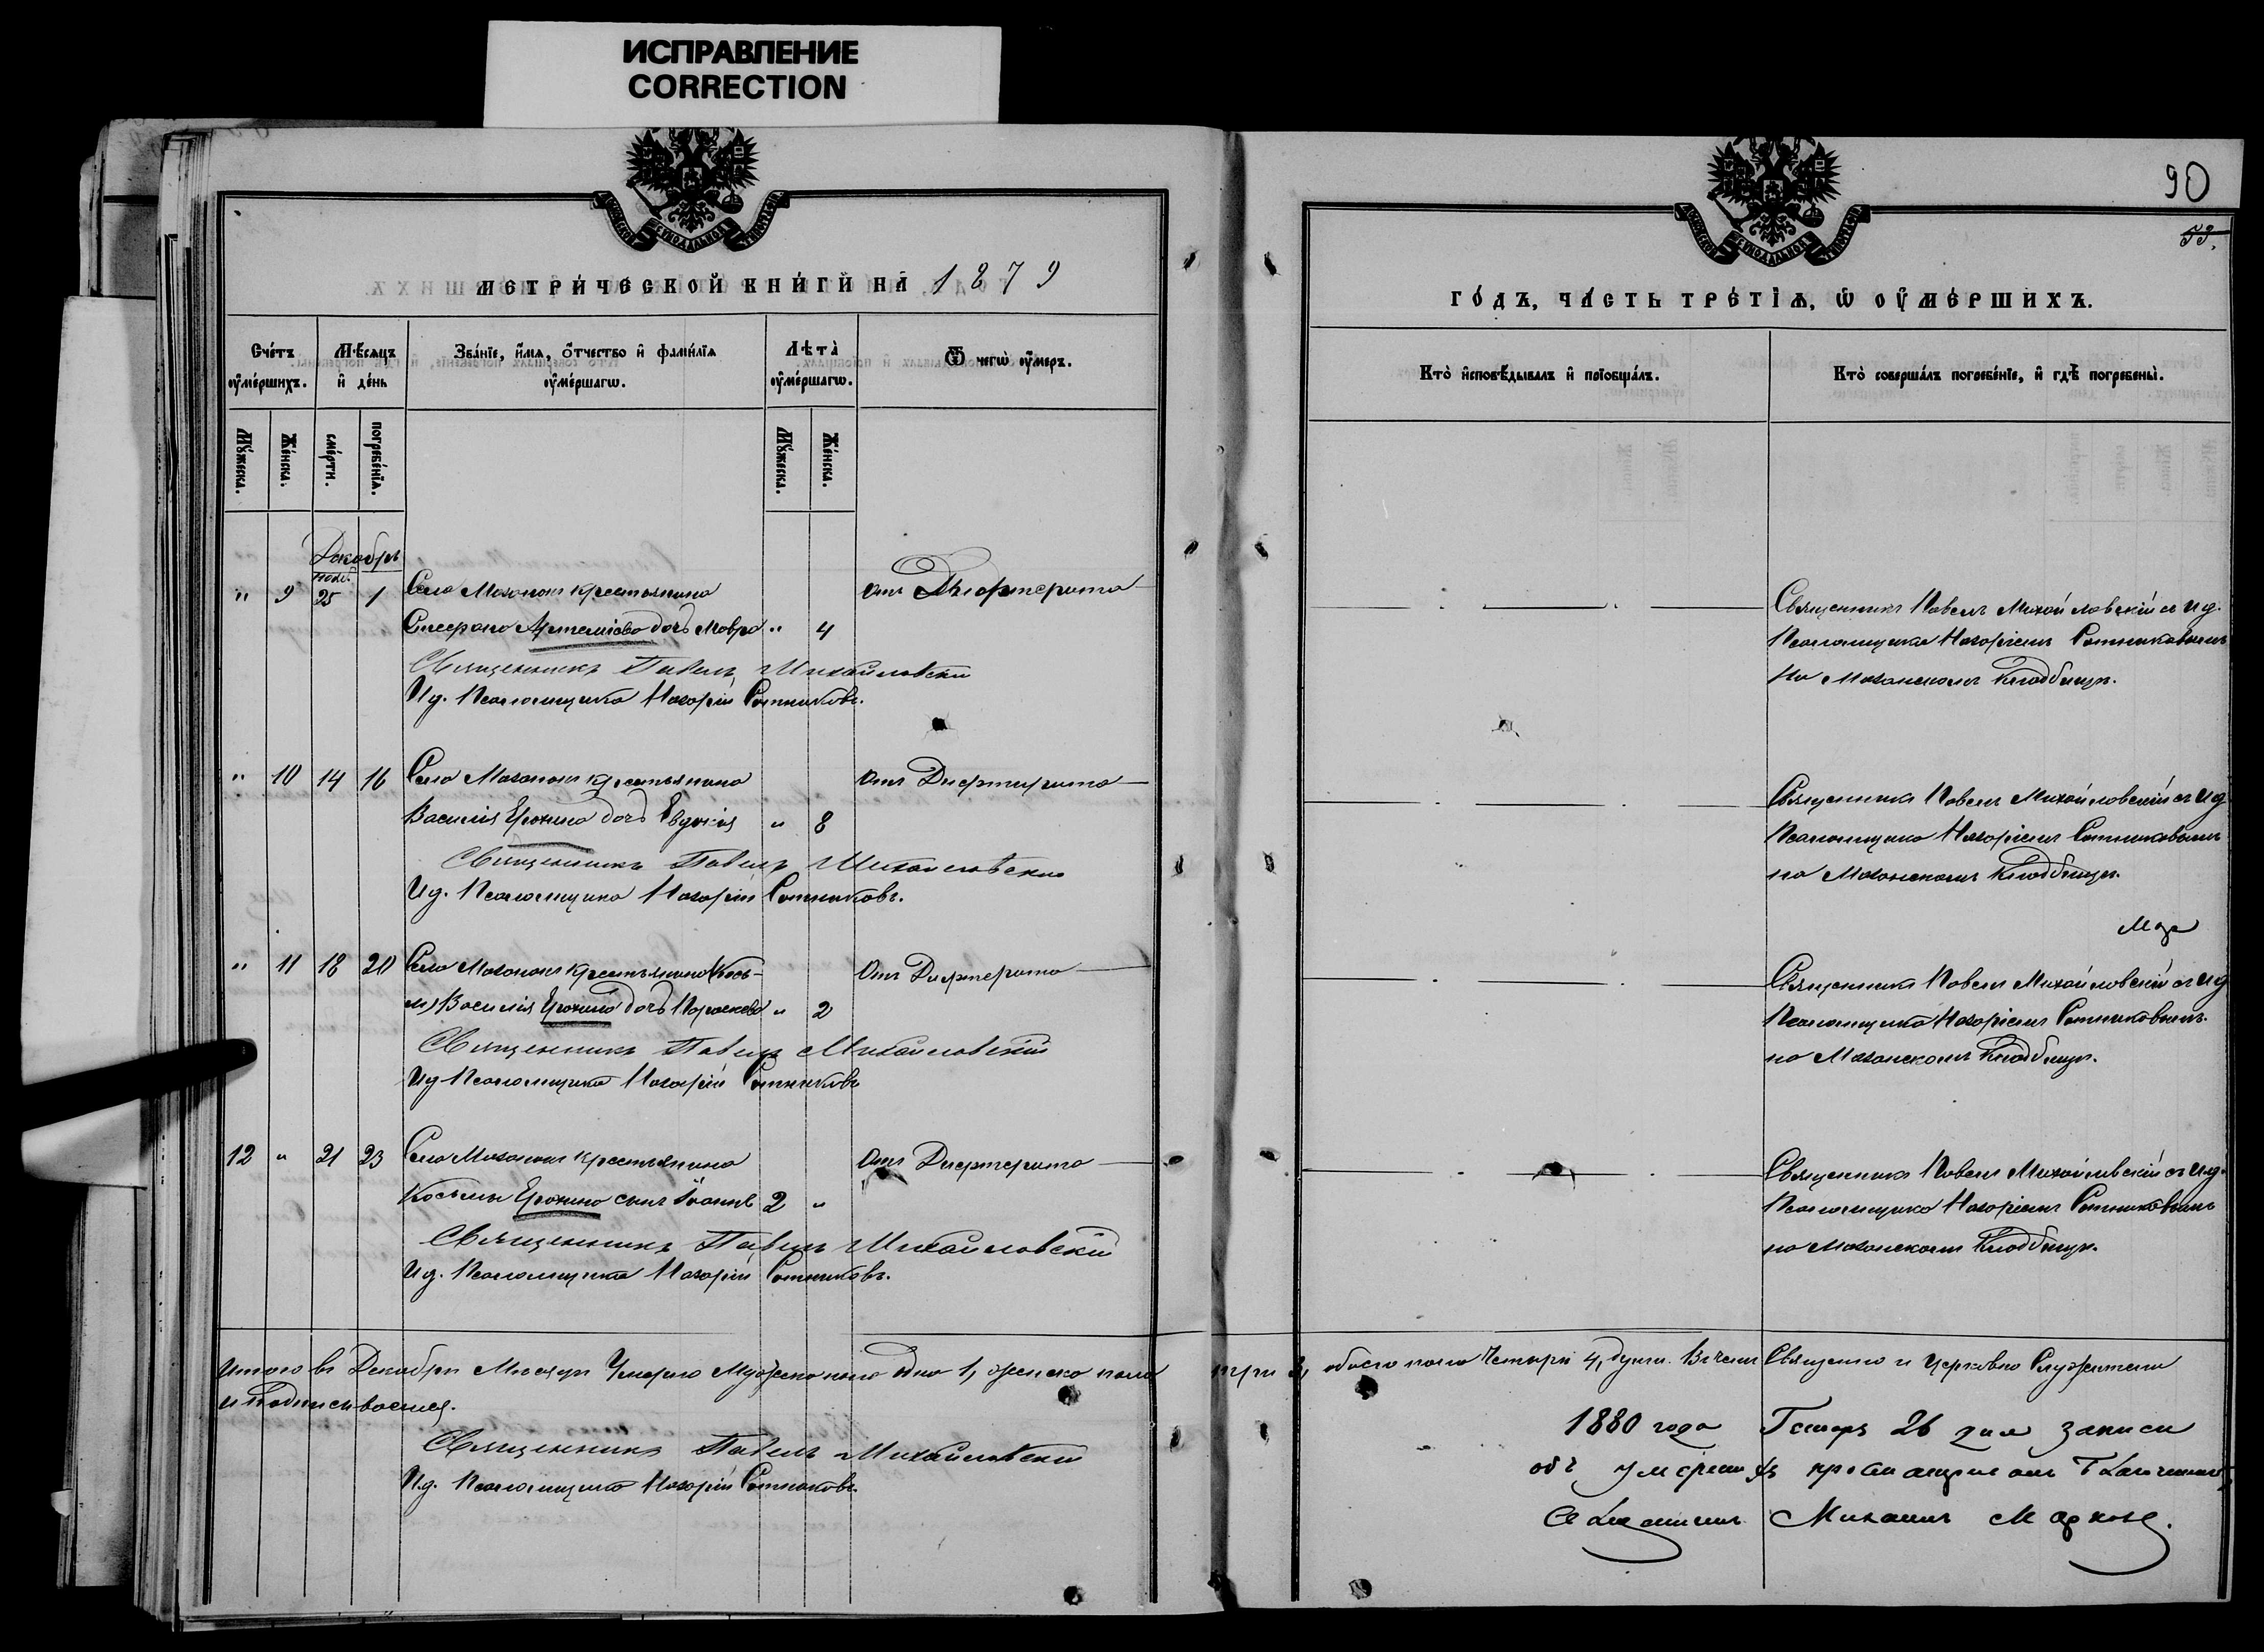 ИСПРАВЛЕНИЕ
CORRECTION
МЕТРИЧЕСКОЙ КНИГИ НА 1879
Счетъ оумершихъ.
Мѣсяцъ и день
Званіе, имя, отчество и фамилія оумершагѡ.
Лѣта оумершагѡ.
Ѿ чегѡ оумеръ.
Мужеска.
Женска.
смерти.
погребенія.
Мужеска.
Женска.
Декабрь
нояб.
" 9 25 1 Села крестьянина
Артемьева дочь Мавра " 4
отъ Дифтерита
Священникъ Павелъ Михайловскій
И. д. Псаломщика Назарій Сотниковъ.
" 10 14 16 Села крестьянина
Василія Ерохина дочь Евдокія " 8
отъ Дифтерита
Священникъ Павелъ Михайловскій
И. д. Псаломщика Назарій Сотниковъ.
" 11 18 20 Села крестьянина
Василія Ерохина дочь Параскева " 2
отъ Дифтерита
Священникъ Павелъ Михайловскій
И д Псаломщика Назарій Сотниковъ
12 " 21 23 Села крестьянина
Косьмы Ерохина сынъ Іоаннъ 2 "
отъ Дифтерита
Священникъ Павелъ Михайловскій
И. д. Псаломщика Назарій Сотниковъ.
Итого въ Декабрѣ Мѣсяцѣ Умерло Мужеска пола одна 1, женска пола
и подписываемся.
Священникъ Павелъ Михайловскій
И. д. Псаломщика Назарій Сотниковъ.
90
53.
ГОДЪ, ЧАСТЬ ТРЕТІЯ, Ѡ ОУМЕРШИХЪ.
Кто исповѣдывалъ и пріобщалъ.
Кто совершалъ погребеніе, и гдѣ погребены.
Священникъ Павелъ Михайловскій съ и д.
Псаломщика Назаріемъ Сотниковымъ
на кладбищѣ.
Священникъ Павелъ Михайловскій съ и д
Псаломщика Назаріемъ Сотниковымъ
на кладбищѣ.
Священникъ Павелъ Михайловскій съ и д
Псаломщика Назаріемъ Сотниковымъ.
на кладбищѣ.
Священникъ Павелъ Михайловскій съ и. д.
Псаломщика Назаріемъ Сотниковымъ
на кладбищѣ.
три 3, обоего пола Четыре 4, души. Въ чемъ Священно и Церковно Служители
1880 года Генваря 26 дня записи
объ умершихъ
Михаилъ Марковъ.